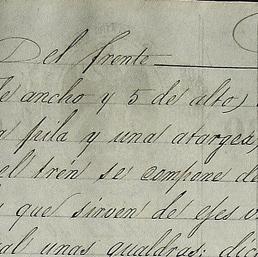 Del frente
de ancho y 5 de alto,
pila y una atargea,
el tren se compone de
que sirven de ejes
unas gualdras; dic